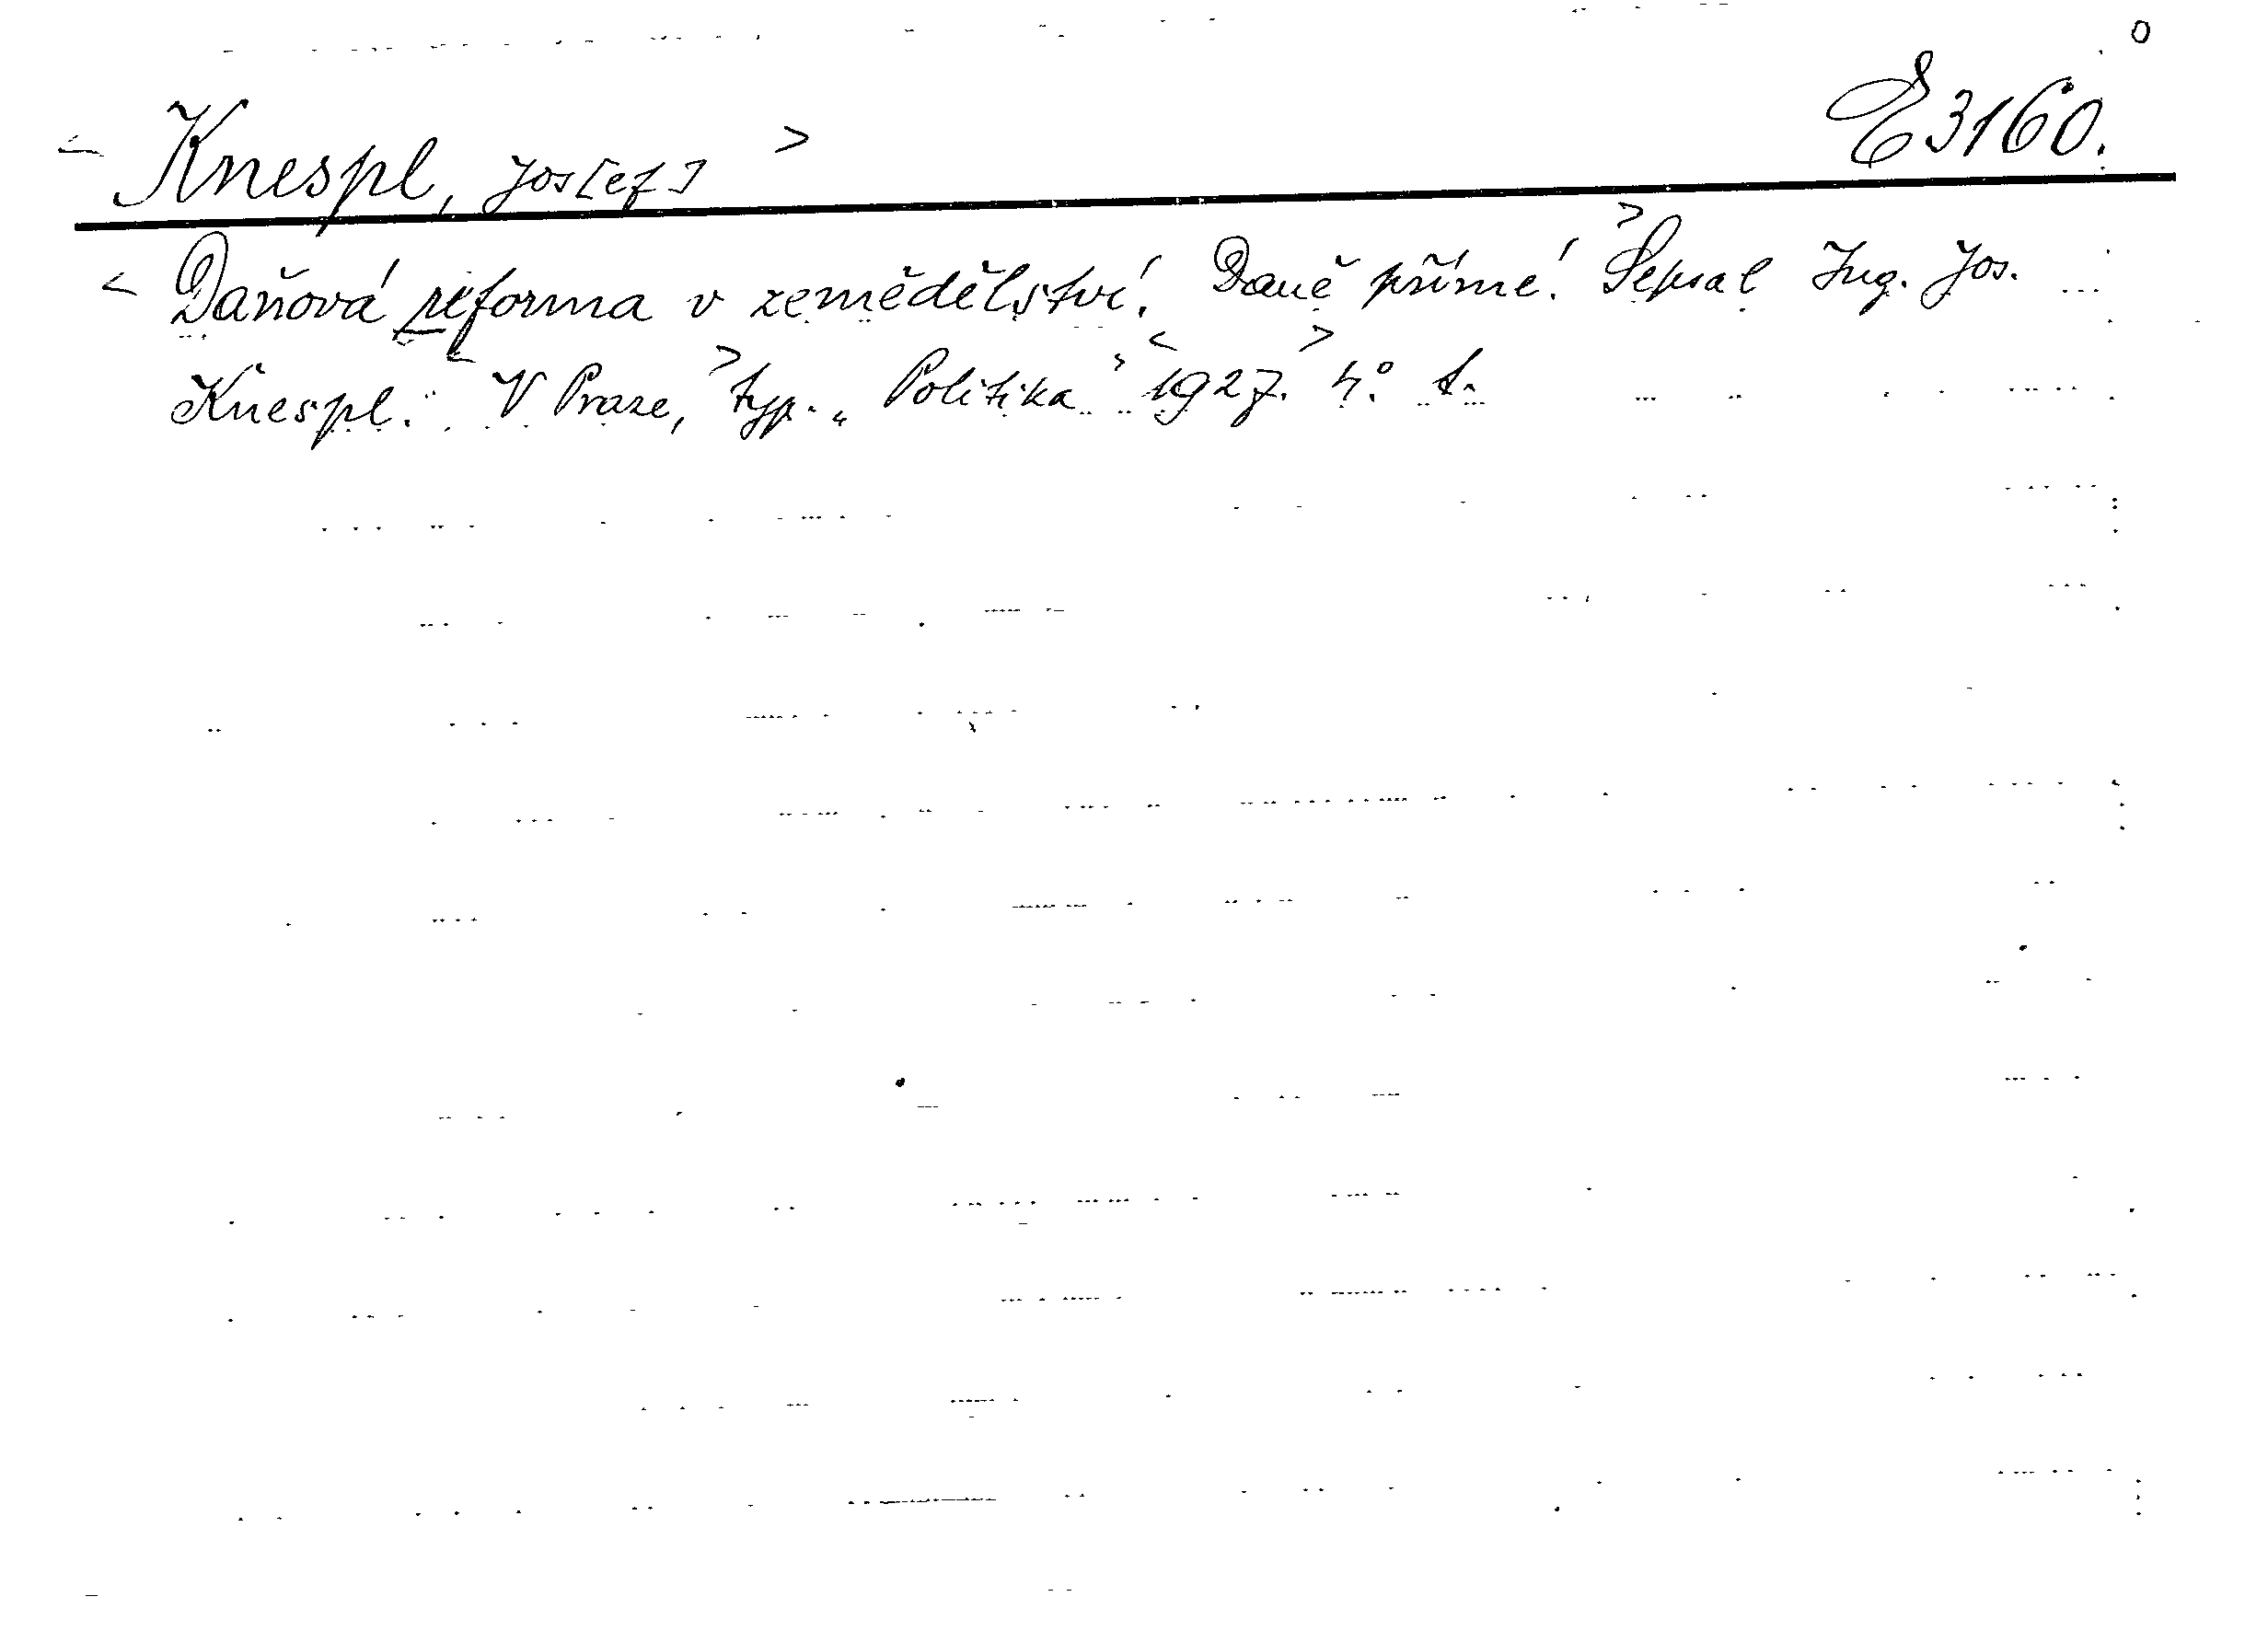 < Knespl, Jos[ef] > E 3160.
< Daňová reforma v zemědělství. Daně přímé. > Sepsal Ing. Jos.
Knespl. < V Praze, > typ. „Politika“ < 1927. > 4°.